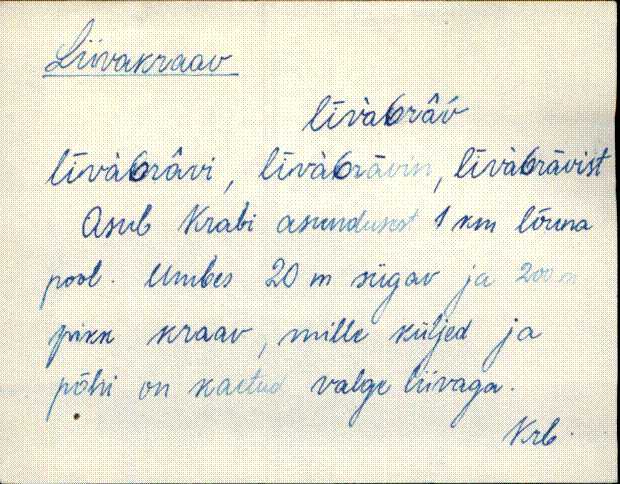 Liivakraav
līvàbrâv̀
līvàbrâvi, līvàbrāvin, līvàbrāvist
Asub Krabi asundusest 1 km lõuna
pool. Umbes 20 m sügav ja 200 m
pikk kraav, mille küljed ja
põhi on kaetud valge liivaga.
Krb.